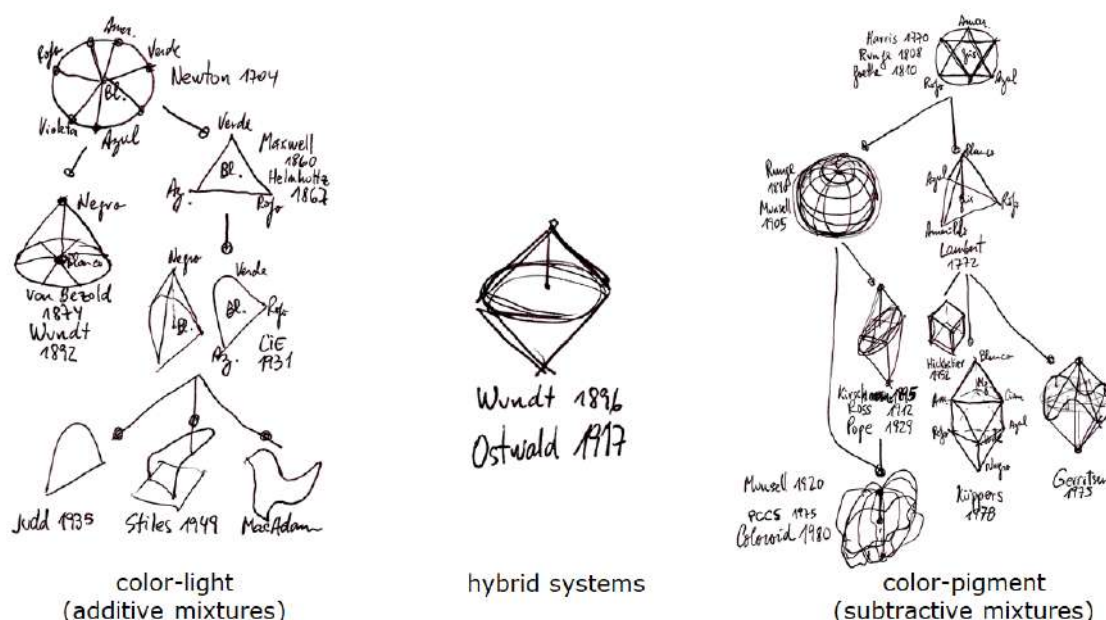 Amar.
Rojo
Verde
Bl.
Newton 1704
Violeta
Azul
Verde
Maxwell
1860
Helmholtz
1867
Bl.
Az.
Rojo
Negro
Blanco
von Bezold
1874
Wundt
1892
Negro
Bl.
Verde
Bl.
Rojo
Az.
CIE
1931
Judd 1935
Stiles 1949
MacAdam
color-light
(additive mixtures)
Wundt 1896
Ostwald 1917
hybrid systems
Harris 1770
Runge 1808
Goethe 1810
Amar.
Gris
Rojo
Azul
Runge
1810
Munsell
1905
Blanco
Azul
Gris
Rojo
Amarillo
Lambert
1772
Kirschmann 1895
Ross 1912
Pope 1929
Hickethier
1952
Blanco
Mg.
Am.
Cian
Rojo
Azul
Verde
Negro
Küppers
1978
Gerritsen
1975
Munsell 1920
PCCS 1975
Coloroid 1980
color-pigment
(subtractive mixtures)